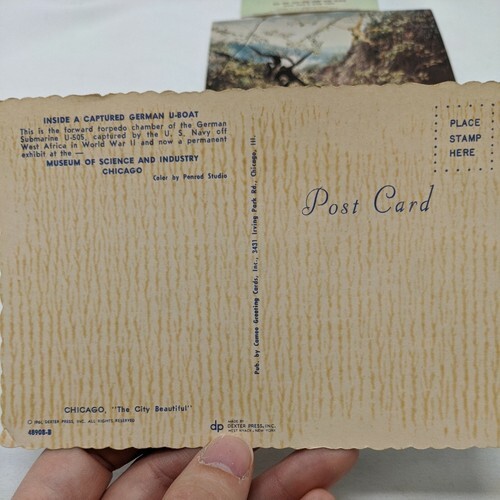 INSIDE A CAPTURED GERMAN U-BOAT
This is the forward torpedo chamber of the German
Submarine U-505, captured by the U. S. Navy off
West Africa in World War II and now a permanent
exhibit at the —
MUSEUM OF SCIENCE AND INDUSTRY
CHICAGO
Color by Penrod Studio
Pub. by Cameo Greeting Cards, Inc., 3431 Irving Park Rd., Chicago, Ill.
PLACE
STAMP
HERE
Post Card
CHICAGO, "The City Beautiful"
DEXTER PRESS, INC. ALL RIGHTS RESERVED
40908-B
dp
MADE BY
DEXTER PRESS, INC.
WEST NYACK, NEW YORK